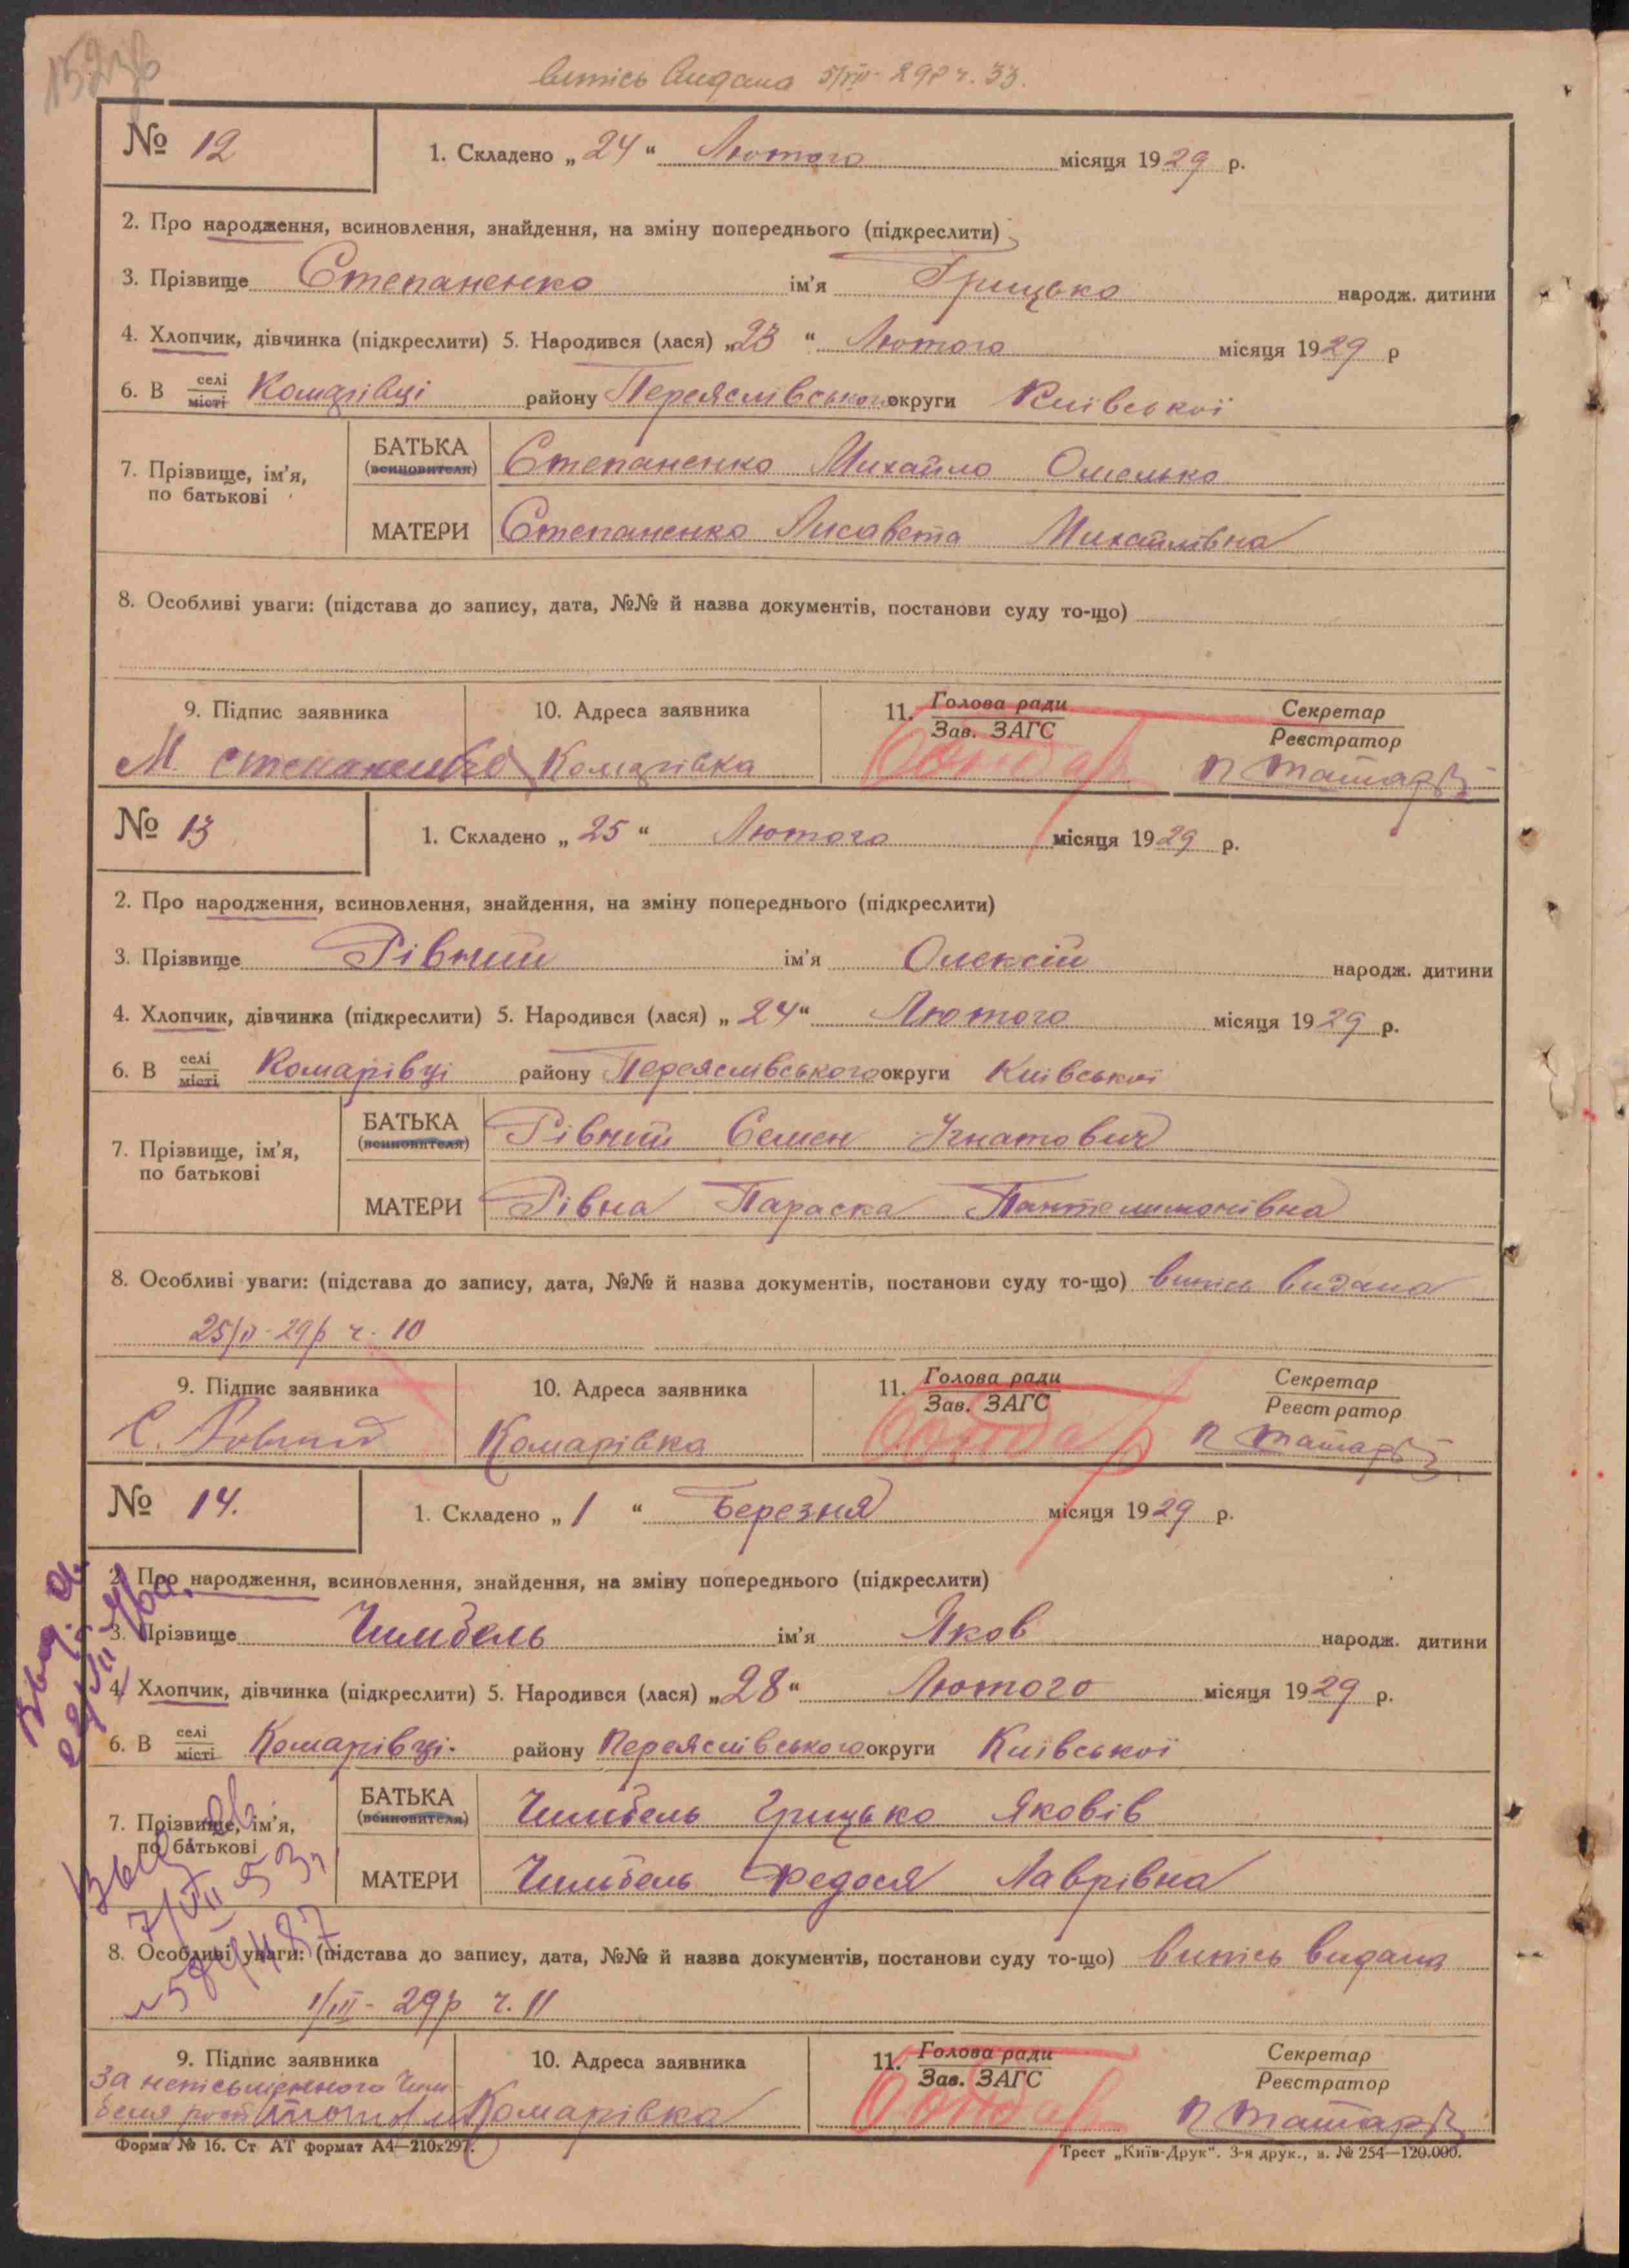 витісь видана 5/VIII-29р ч. 33.
№ 12
1. Складено „ 24 “ Лютого місяця 1929 р.
2. Про народження, всиновлення, знайдення, на зміну попереднього (підкреслити)
3. Прізвище Степаненко ім'я Грицько народж. дитини
4. Хлопчик, дівчинка (підкреслити) 5. Народився (лася) „23 “ Лютого місяця 1929 р
6. В селі місті Комарівці району Переяслівського округи Київської
7. Прізвище, ім'я, по батькові
БАТЬКА (всиновителя) Степаненко Михайло Омелько
МАТЕРИ Степаненко Лисавета Михайлівна
8. Особливі уваги: (підстава до запису, дата, №№ й назва документів, постанови суду то-що)
9. Підпис заявника 10. Адреса заявника 11. Голова ради Зав. ЗАГС Секретар Реєстратор
М Степаненко Комарівка Бондар П Татар
№ 13
1. Складено „ 25 “ Лютого місяця 1929 р.
2. Про народження, всиновлення, знайдення, на зміну попереднього (підкреслити)
3. Прізвище Рівний ім'я Олексій народж. дитини
4. Хлопчик, дівчинка (підкреслити) 5. Народився (лася) „ 24“ Лютого місяця 1929 р.
6. В селі місті Комарівці району Переяслівського округи Київської
7. Прізвище, ім'я, по батькові
БАТЬКА (всиновителя) Рівний Семен Ігнатович
МАТЕРИ Рівна Параска Пантелимонівна
8. Особливі уваги: (підстава до запису, дата, №№ й назва документів, постанови суду то-що) витісь видана
25/II-29р ч. 10
9. Підпис заявника 10. Адреса заявника 11. Голова ради Зав. ЗАГС Секретар Реєстратор
С. Ровный Комарівка Бондар П Татар
№ 14.
1. Складено „ 1 “ Березня місяця 1929 р.
2. Про народження, всиновлення, знайдення, на зміну попереднього (підкреслити)
3. Прізвище Чимбель ім'я Яков народж. дитини
4. Хлопчик, дівчинка (підкреслити) 5. Народився (лася) „28“ Лютого місяця 1929 р.
6. В селі місті Комарівці. району Переяслівського округи Київської
7. Прізвище, ім'я, по батькові
БАТЬКА (всиновителя) Чимбель Грицько Яковів
МАТЕРИ Чимбель Федося Лаврівна
8. Особливі уваги: (підстава до запису, дата, №№ й назва документів, постанови суду то-що) витісь видана
1/III- 29р ч. 11
9. Підпис заявника 10. Адреса заявника 11. Голова ради Зав. ЗАГС Секретар Реєстратор
За неписьменного Чим
беля Комарівка Бондар П Татар
Форма № 16. Ст АТ формат А4—210x297.
Трест „Київ-Друк“. 3-я друк., з. № 254—120.000.